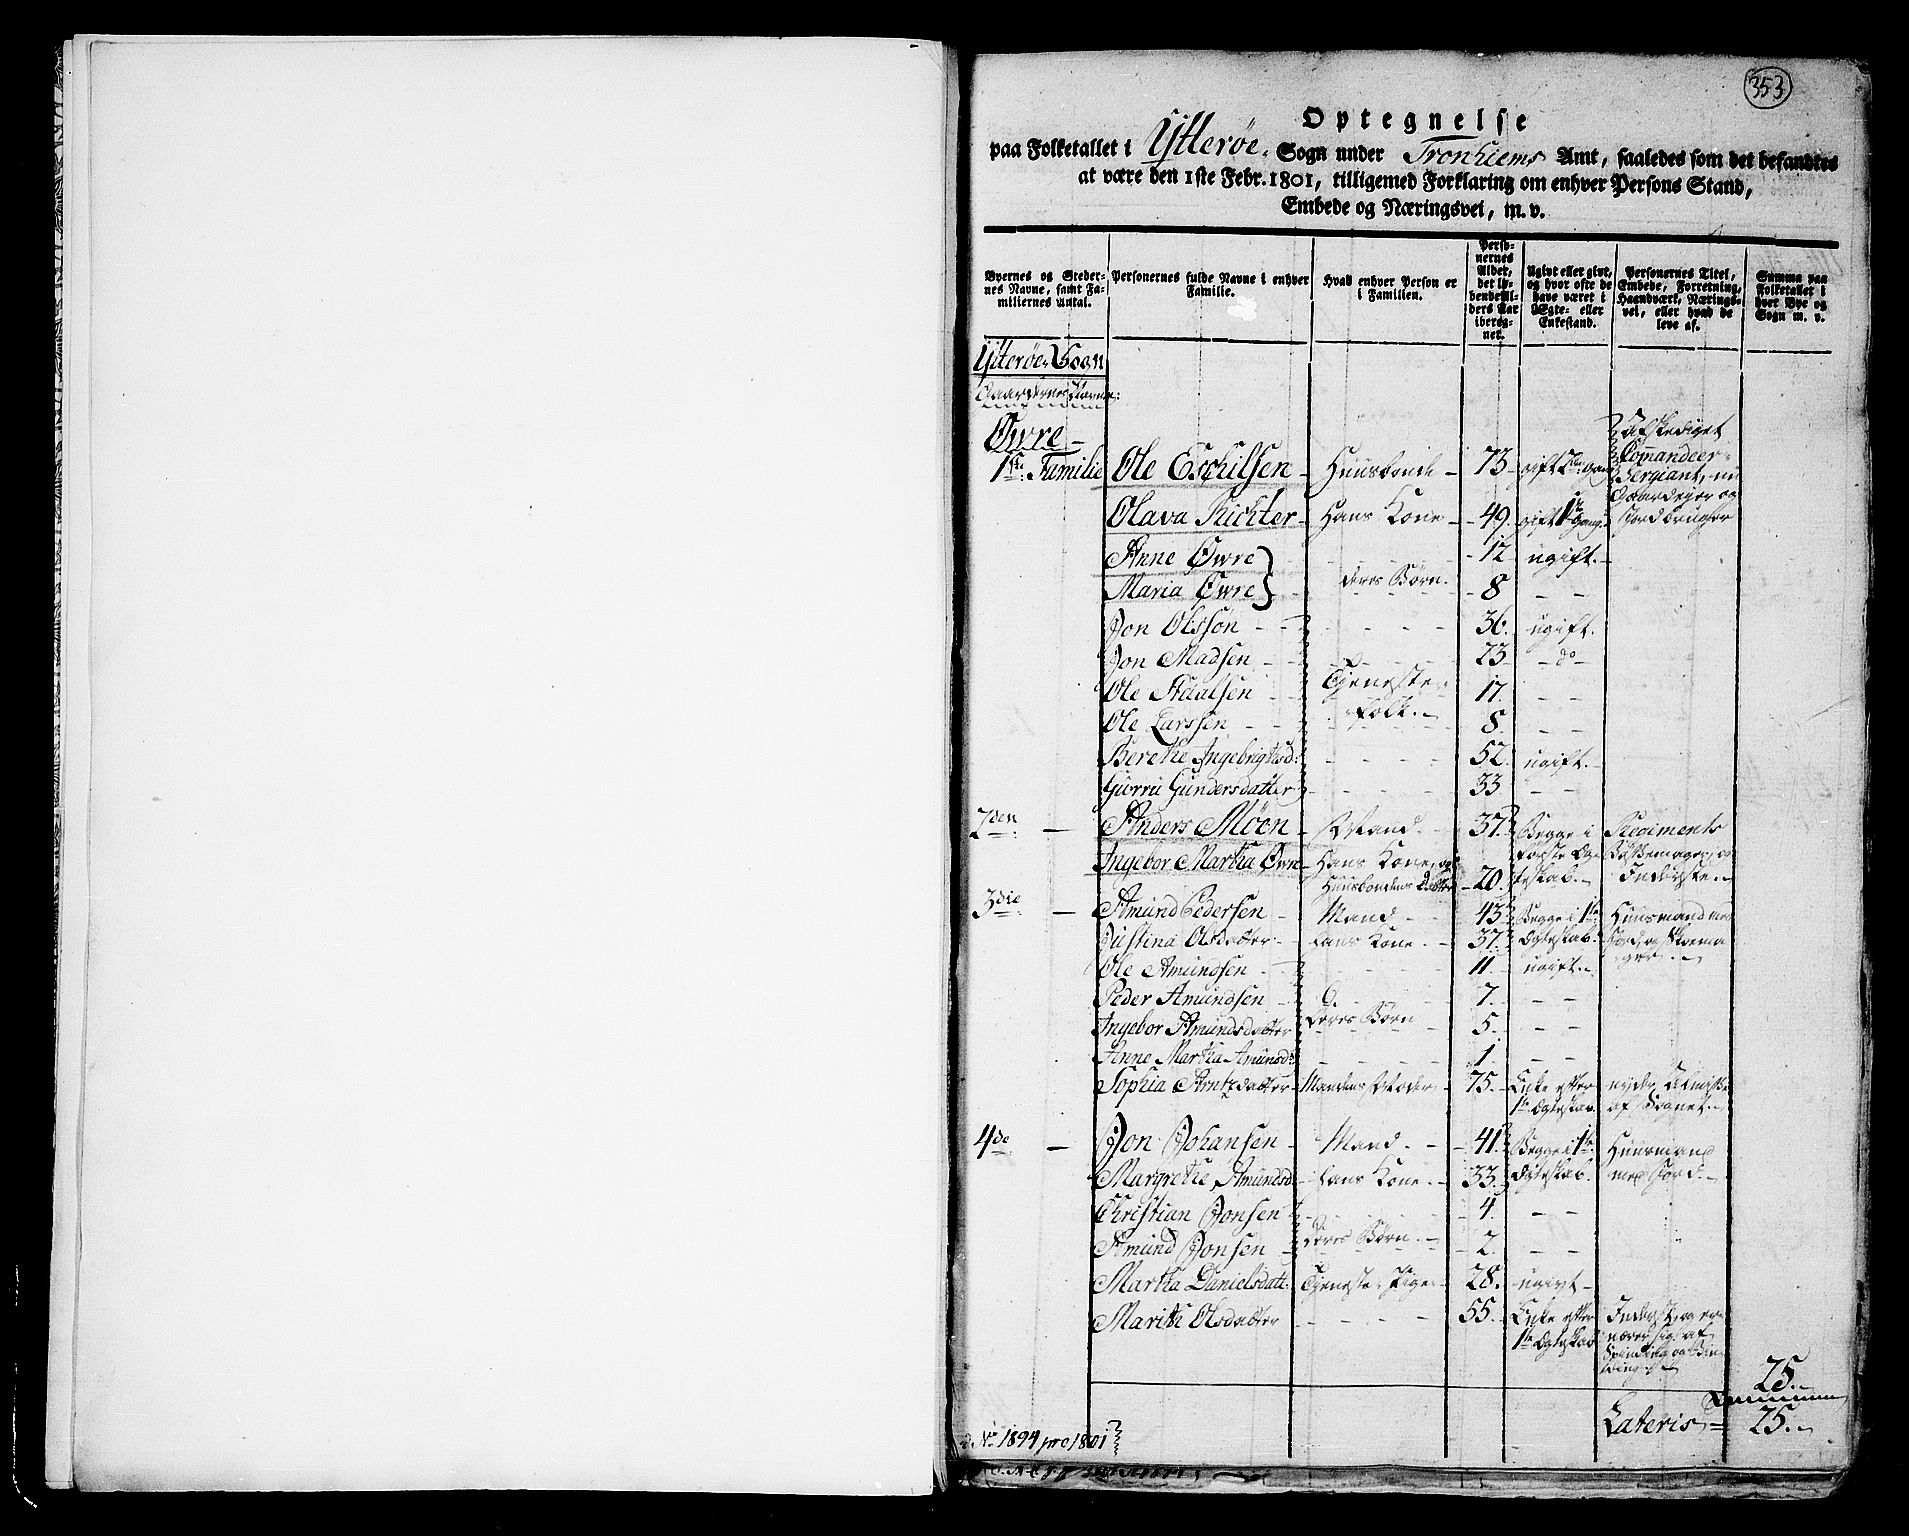 353
Optegnelse
paa Folketallet i Ytterøe Sogn under Tronhiems Amt, saaledes som det befandtes
at være den 1ste Febr. 1801, tilligemed Forklaring om enhver Persons Stand,
Embede og Næringsvei, m. v.
Byernes og Stedernes Navne, samt Familiernes Antal.
Personernes fulde Navne i enhver Familie.
Hvad enhver Person er i Familien.
Personernes Alder, det løbende Alders Aar iberegnet.
Ugivt eller givt, og hvor ofte de have været i Ægte- eller Enkestand.
Personernes Titel, Embede, Forretning, Haandværk, Næringsvei, eller hvad de leve af.
Summa paa Folketallet i hver Bye og Sogn m. v.
Ytterøe Sogn
Gaardernes Navne:
Øvre
1ste Familie Ole Eschilsen Huusbonde 73 gift 2den Gang Afskediget Comandeer Sergeant, nu Gaardejer og Jordbruger
Olava Richter Hans Kone 49 gift 1ste Gang
Anne Øwre 12 ugift.
Maria Øwre deres Børn 8 - -
Jon Olsson 36. ugift.
Jon Madsen 23 do
Ole Adalsen Tjeneste 17 - -
Ole Larssen folk. 8 - -
Berethe Ingebrigtsd: 52. ugift.
Gurru Gundersdatter 33 - -
2den - Anders Möen Mand 37. Begge i Regiments
Ingebor Martha Øvre Hans Kone, og Huusbondens Datter 20. første Ægteskab. Bøssemager, og Inderste.
3die - Amund Pedersen Mand 43 Begge i 1te Huusmand med
Justina Olsdatter hans Kone 37. Ægteskab. Jord, og Skoemager
Ole Amundsen 11 ugift.
Peder Amundsen 7. - -
Ingebor Amundsdatter deres Børn 5. - -
Anne Martha Amunsd: 1 - -
Sophia Arntzdatter Mandens Moder 75. Enke efter 1te Ægteskab. nyder Almisse af Sognet.
4de - Jon Johansen Mand 41 Begge i 1te Huusmand
Margrethe Amundsd: hans Kone 33. Ægteskab. med Jord.
Christian Jonsen 4. - -
Amund Jonsen deres Børn 2. - -
Martha Danielsdatt: Tjeneste Pige 28. ugivt
Marith Olsdatter 55. Enke efter 1te Ægteskab Inderst, og ernærer sig af Spinding og Binding
25.
Lateris = 25.
No 1894 pro 1801